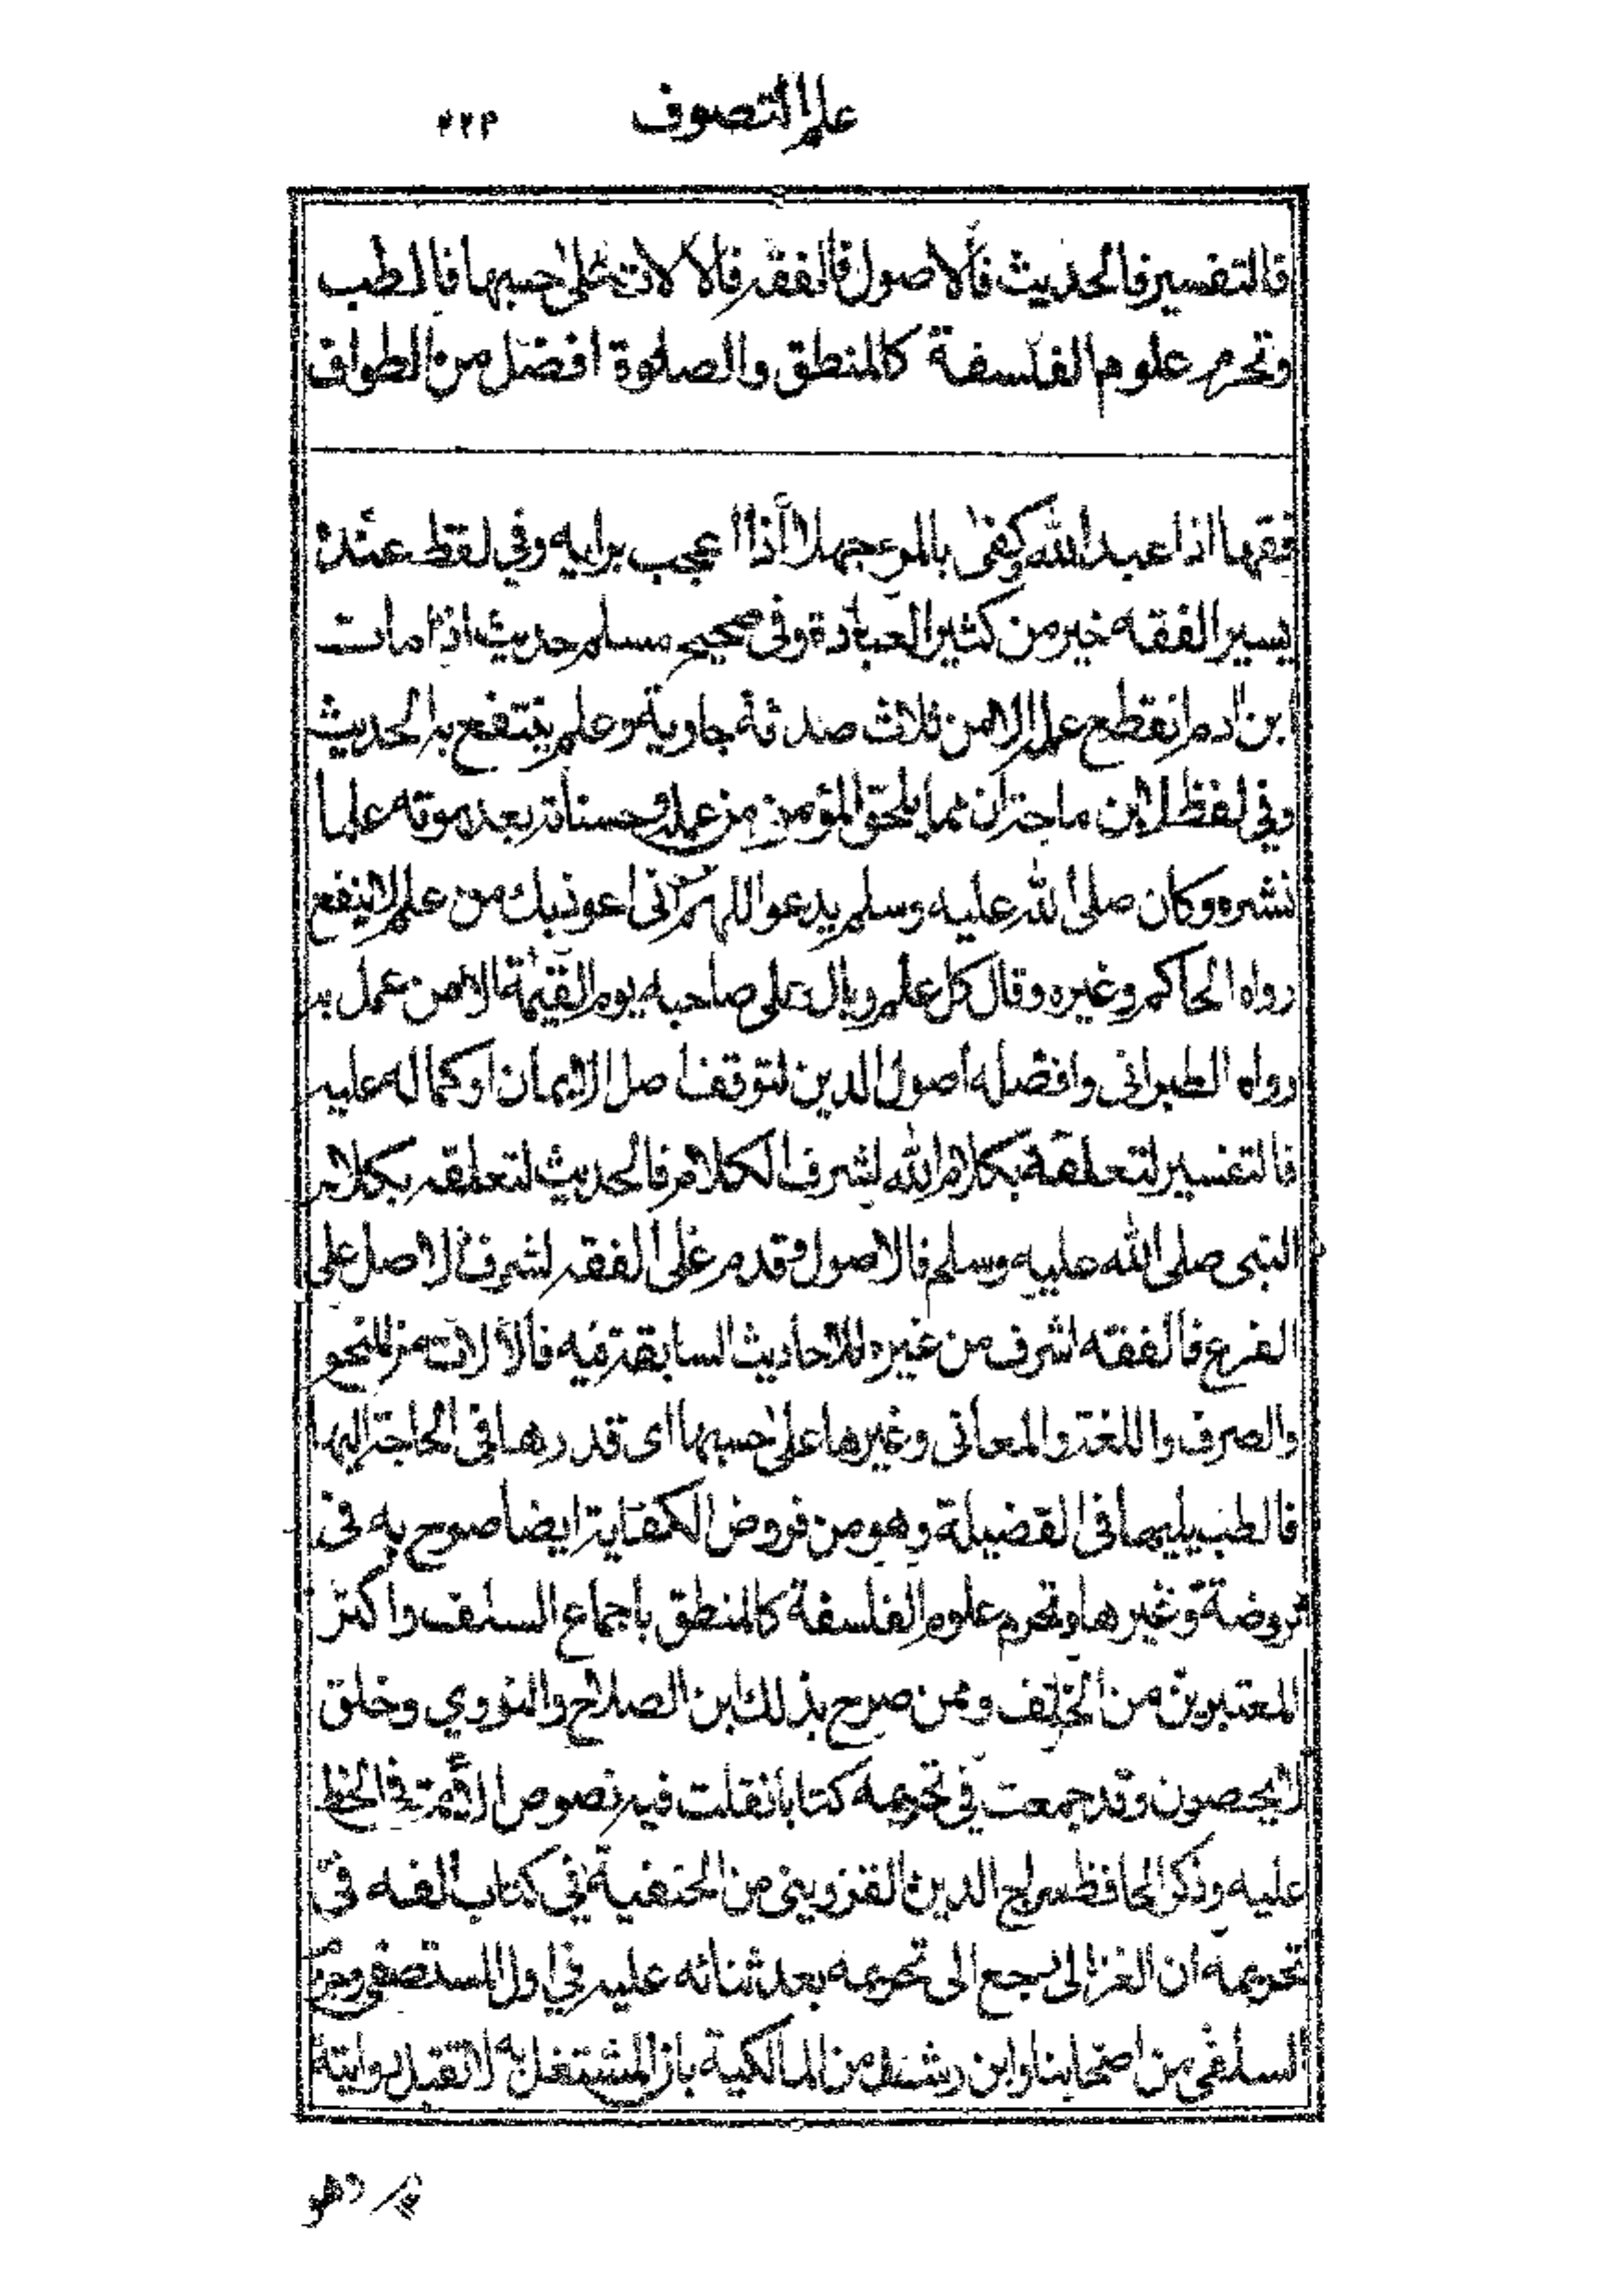 علم التصوف ٢٢٣
فالتفسير فالحديث فالاصول فالفقه فالالات على حسبها فالطب
وتحرم علوم الفلسفة كالمنطق والصلوة افضل من الطواف
فقها اذا عبد الله وكفى بالمرء جهلا اذا اعجب برايه وفي لفظ عنده
يسير الفقه خير من كثير العبادة وفى صحيح مسلم حديث اذا مات
ابن ادم انقطع عمله الا من ثلاث صدقة جارية وعلم ينتفع به الحديث
وفي لفظ لابن ماجة ان مما يلحق المؤمن من عمله وحسناته بعد موته علما
نشره وكان صلى الله عليه وسلم يدعو اللهم انى اعوذ بك من علم لا ينفع
رواه الحاكم وغيره وقال كل علم وبال على صاحبه يوم القيمة الا من عمل به
رواه الطبرانى وافضله اصول الدين لتوقف اصل الايمان او كماله عليه
فالتفسير لتعلقه بكلام الله لشرف الكلام فالحديث لتعلقه بكلام
النبى صلى الله عليه وسلم فالاصول وقدم على الفقه لشرف الاصل على
الفرع فالفقه اشرف من غيره للاحاديث السابقة فيه فالالات من النحو
والصرف واللغة والمعانى وغيرها على حسبها اى قدرها فى الحاجة اليها
فالطب يليها فى الفضيلة وهو من فروض الكفاية ايضا صرح به فى
الروضة وغيرها وتحرم علوم الفلسفة كالمنطق باجماع السلف واكثر
المعتبرين من الخلف وممن صرح بذلك ابن الصلاح والنووي وخلق
لا يحصون وقد جمعت في تحريمه كتابا نقلت فيه نصوص الائمة فى الحط
عليه وذكر الحافظ سراج الدين القزوينى من الحنفية في كتاب الفه فى
تحريمه ان الغزالى رجع الى تحريمه بعد ثنائه عليه في اول المستصفى وجزم
السلفى من اصحابنا وابن رشد من المالكية بان المشتغل به لا تقبل روايته